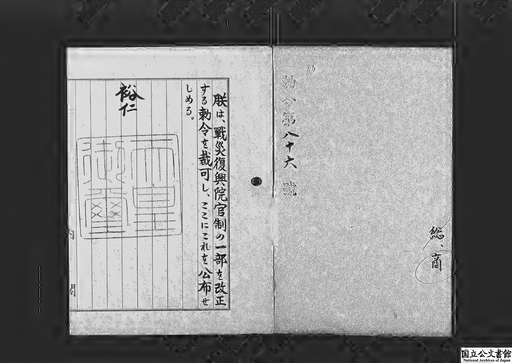 勅令第八十六號
総、商
朕は、戰災復興院官制の一部を改正
する勅令を裁可し、ここにこれを公布せ
しめる。
裕仁
天皇
御璽
内閣
国立公文書館
National Archives of Japan